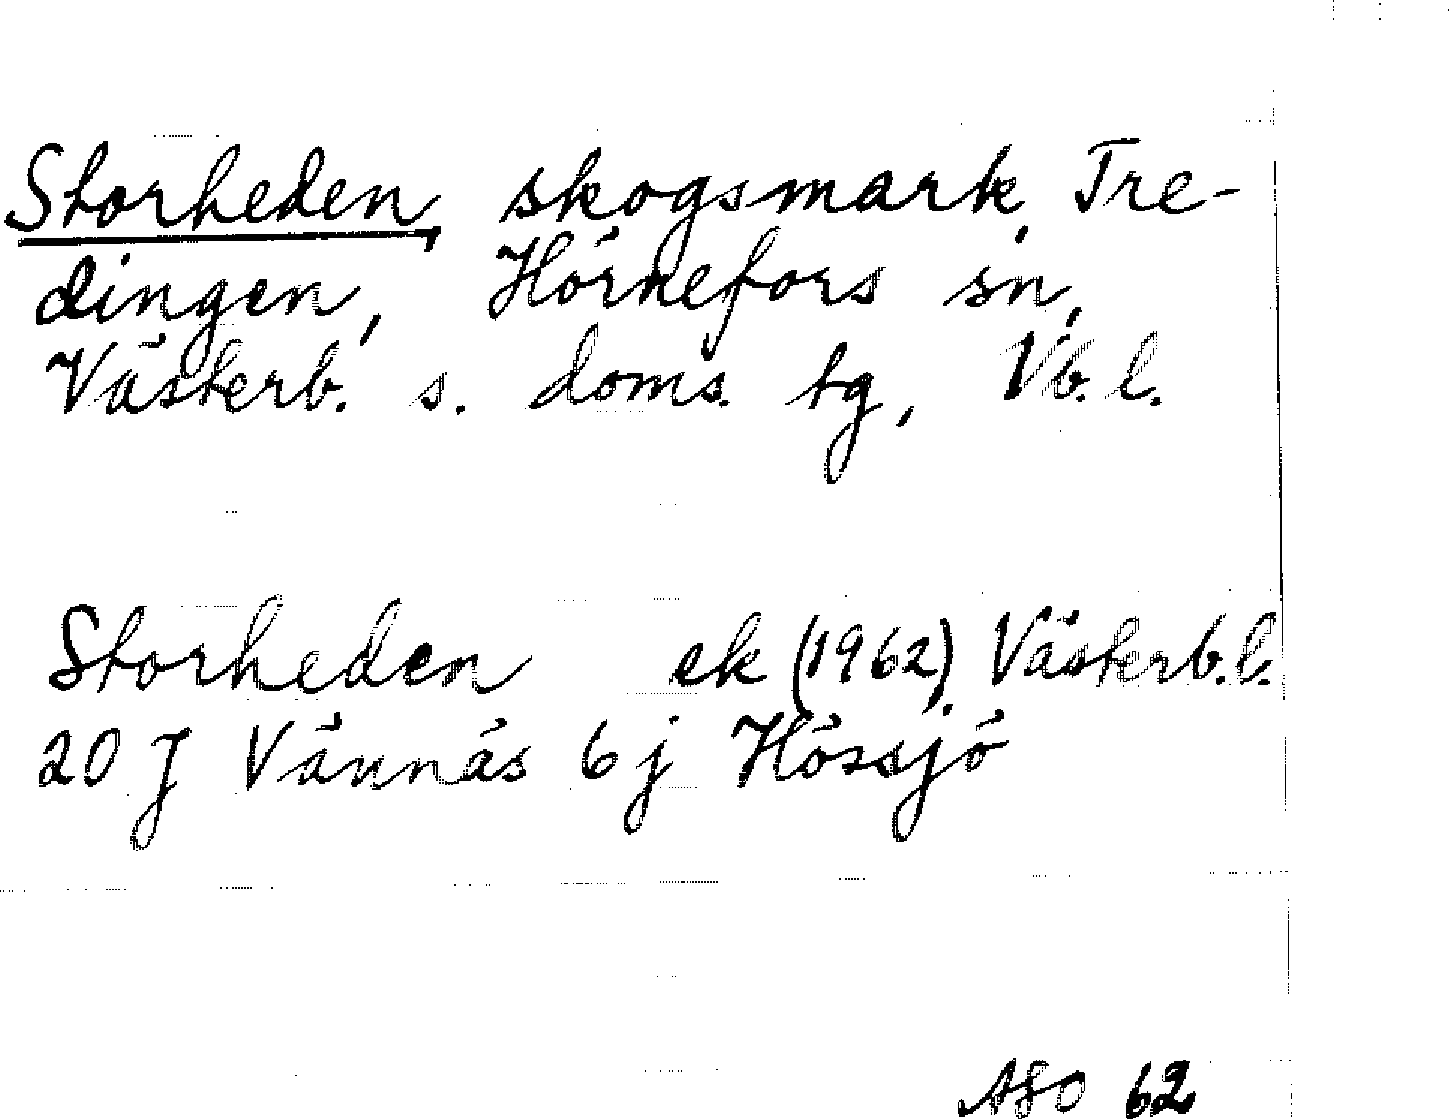 Storheden, skogsmark, Tre-
dingen, Hörnefors sn,
Västerb. s. doms. tg, Vb. l.
Storheden ek (1962) Västerb. l.
20 J Vännäs 6 j Hössjö
ASO 62